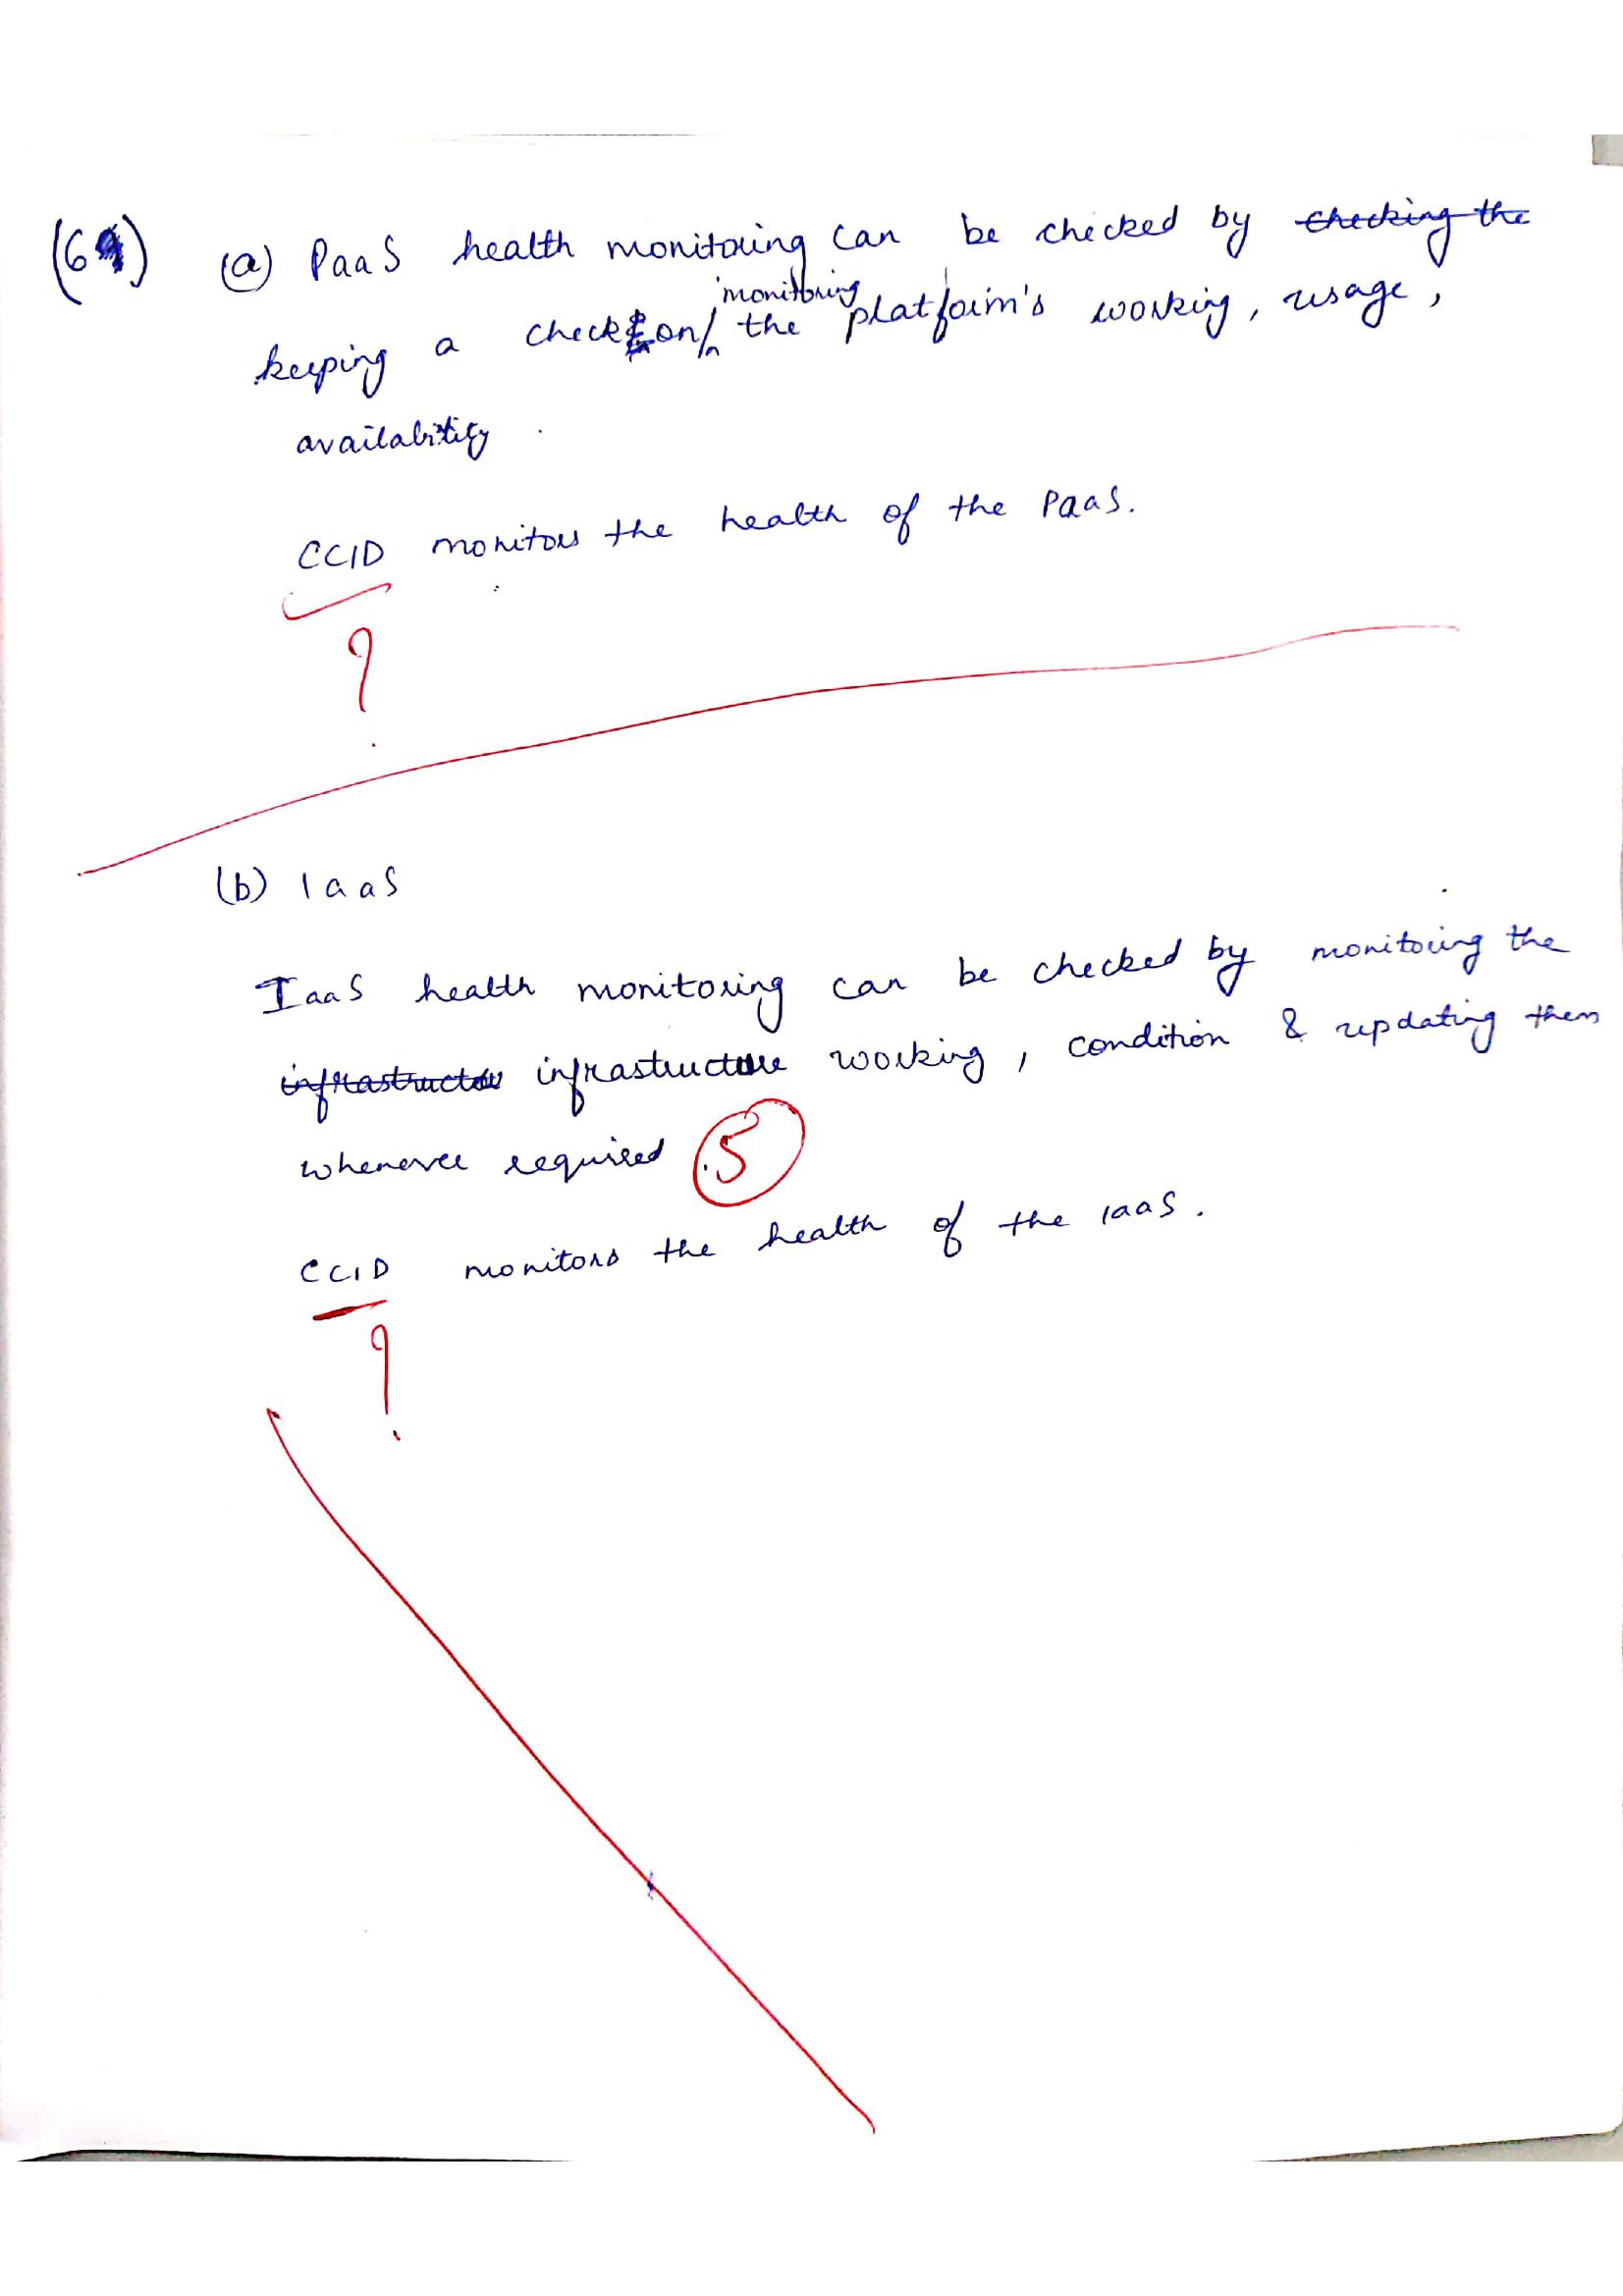 (6) (a) PaaS health monitoring can be checked by checking the
keeping a check on monitoring the platform's working, usage,
availability.
CCID monitors the health of the PaaS.
?
(b) IaaS
IaaS health monitoring can be checked by monitoring the
infrastructu infrastructure working, condition & updating them
whenever required .5
CCID monitors the health of the IaaS.
?